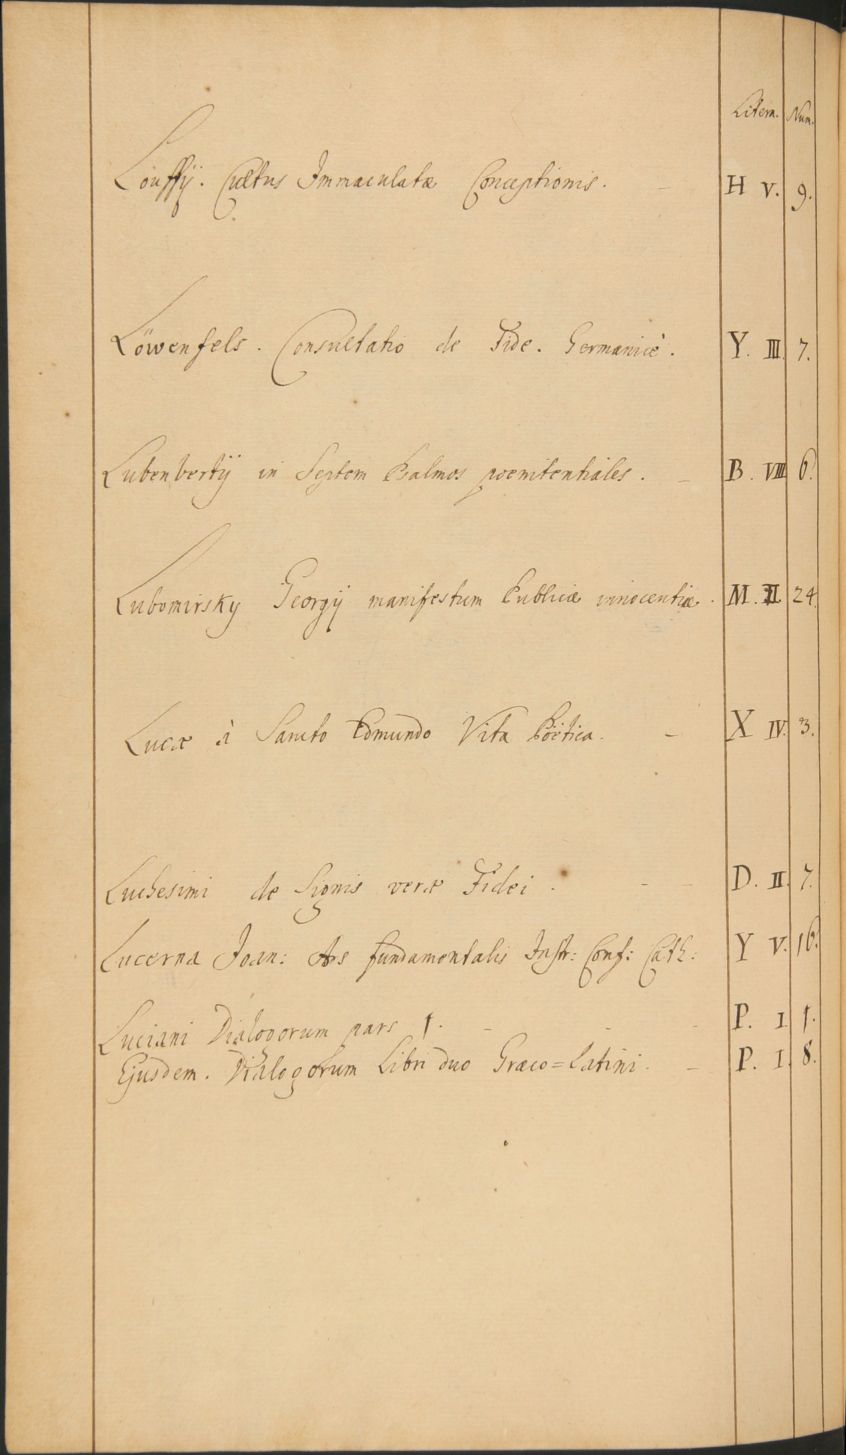 Litera. Num.
Louffÿ. Cultus Immaculatæ Conceptionis. - H V. 9.
Löwenfels. Consultatio de Fide. Germanicè. Y. III. 7.
Lubenbertÿ in Septem Psalmos poenitentiales. - B. VIII 6.
Lubomirsky Georgÿ manifestum Publicæ innocentiæ. M. II. 24.
Lucæ à Sancto Edmundo Vita Pöetica. - X IV. 3.
Luchesimi de Signis veræ Fidei. - - D. II. 7.
Lucerna Joan: Ars fundamentalis Instr: Conf: Cath: Y V. 16.
Luciani Dialogorum pars 1. - - - P. I. 1.
Ejusdem. Dialogorum Libri duo Græco=Latini. - P. I. 8.